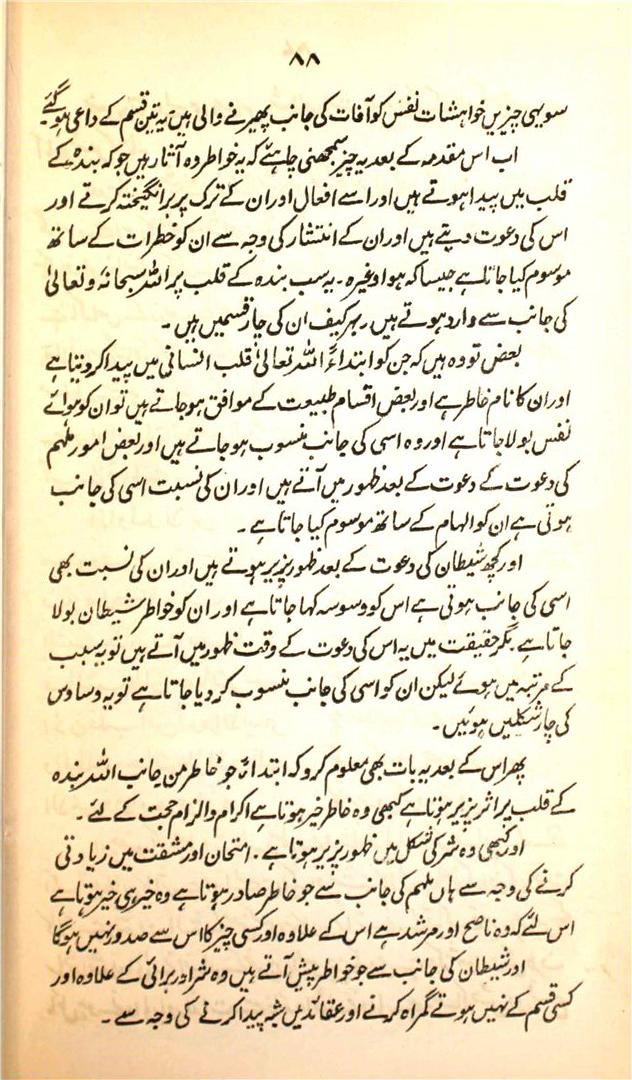 ۸۸
سو یہی چیزیں خواہشات نفس کو آفات کی جانب پھیرنے والی ہیں یہ تین قسم کے داعی ہو گئے۔
اب اس مقدمہ کے بعد یہ چیز سمجھنی چاہئے کہ یہ خواطر وہ آثار ہیں جو کہ بندہ کے
قلب میں پیدا ہوتے ہیں اور اسے افعال اور ان کے ترک پر برانگیختہ کرتے اور
اس کی دعوت دیتے ہیں اور ان کے انتشار کی وجہ سے ان کو خطرات کے ساتھ
موسوم کیا جاتا ہے جیسا کہ ہوا وغیرہ۔ یہ سب بندہ کے قلب پر اللہ سبحانہٗ وتعالیٰ
کی جانب سے وارد ہوتے ہیں۔ بہر کیف ان کی چار قسمیں ہیں۔
بعض تو وہ ہیں کہ جن کو ابتداءً اللہ تعالیٰ قلب انسانی میں پیدا کر دیتا ہے
اور ان کا نام خاطر ہے اور بعض اقسام طبیعت کے موافق ہو جاتے ہیں تو ان کو ہوائے
نفس بولا جاتا ہے اور وہ اسی کی جانب منسوب ہو جاتے ہیں اور بعض امور ملہم
کی دعوت کے دعوت کے بعد ظہور میں آتے ہیں اور ان کی نسبت اسی کی جانب
ہوتی ہے ان کو الہام کے ساتھ موسوم کیا جاتا ہے۔
اور کچھ شیطان کی دعوت کے بعد ظہور پزیر ہوتے ہیں اور ان کی نسبت بھی
اسی کی جانب ہوتی ہے اس کو وسوسہ کہا جاتا ہے اور ان کو خواطر شیطان بولا
جاتا ہے مگر حقیقت میں یہ اس کی دعوت کے وقت ظہور میں آتے ہیں تو یہ سبب
کے مرتبہ میں ہوئے لیکن ان کو اسی کی جانب منسوب کر دیا جاتا ہے تو یہ وساوس
کی چار شکلیں ہوئیں۔
پھر اس کے بعد یہ بات بھی معلوم کرو کہ ابتداءً جو خاطر من جانب اللہ بندہ
کے قلب پر اثر پزیر ہوتا ہے کبھی وہ خاطر خیر ہوتا ہے اکرام و الزام حجت کے لئے۔
اور کبھی وہ شر کی شکل میں ظہور پزیر ہوتا ہے۔ امتحان اور مشقت میں زیادتی
کرنے کی وجہ سے ہاں ملہم کی جانب سے جو خاطر صادر ہوتا ہے وہ خیر ہی خیر ہوتا ہے
اس لئے کہ وہ ناصح اور مرشد ہے اس کے علاوہ اور کسی چیز کا اس سے صدور نہیں ہوگا
اور شیطان کی جانب سے جو خواطر پیش آتے ہیں وہ شر اور برائی کے علاوہ اور
کسی قسم کے نہیں ہوتے گمراہ کرنے اور عقائد میں شبہ پیدا کرنے کی وجہ سے۔